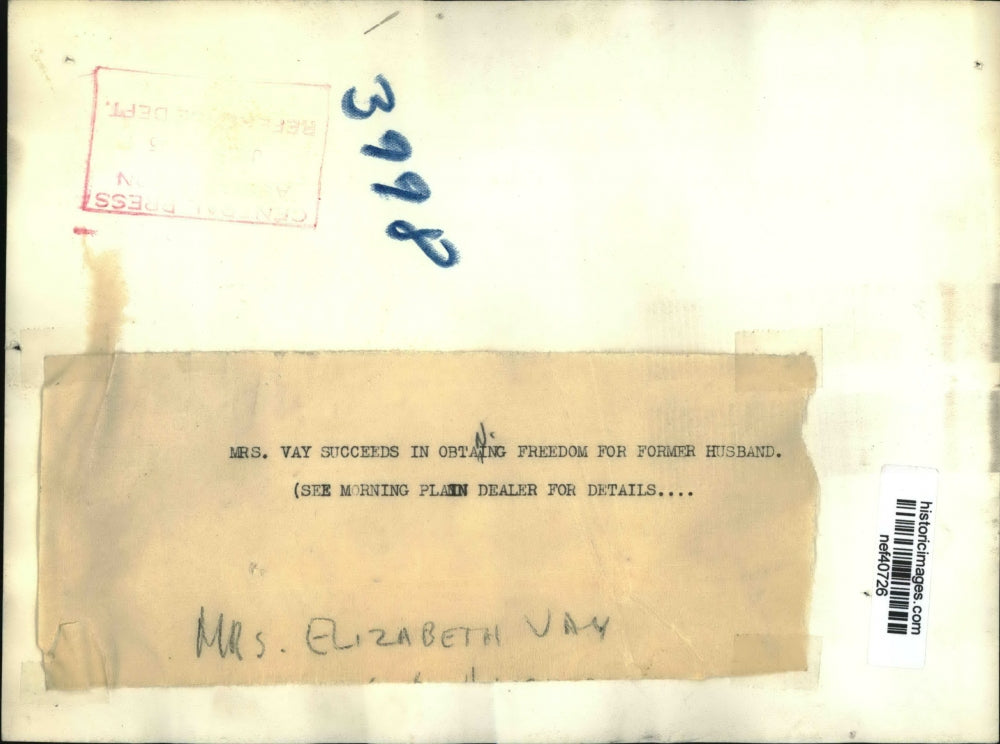 CENTRAL PRESS
REFERENCE DEPT.
3998
MRS. VAY SUCCEEDS IN OBTANING FREEDOM FOR FORMER HUSBAND.
(SEE MORNING PLAIN DEALER FOR DETAILS....
MRS. ELIZABETH VAY
historicimages.com
nef40726